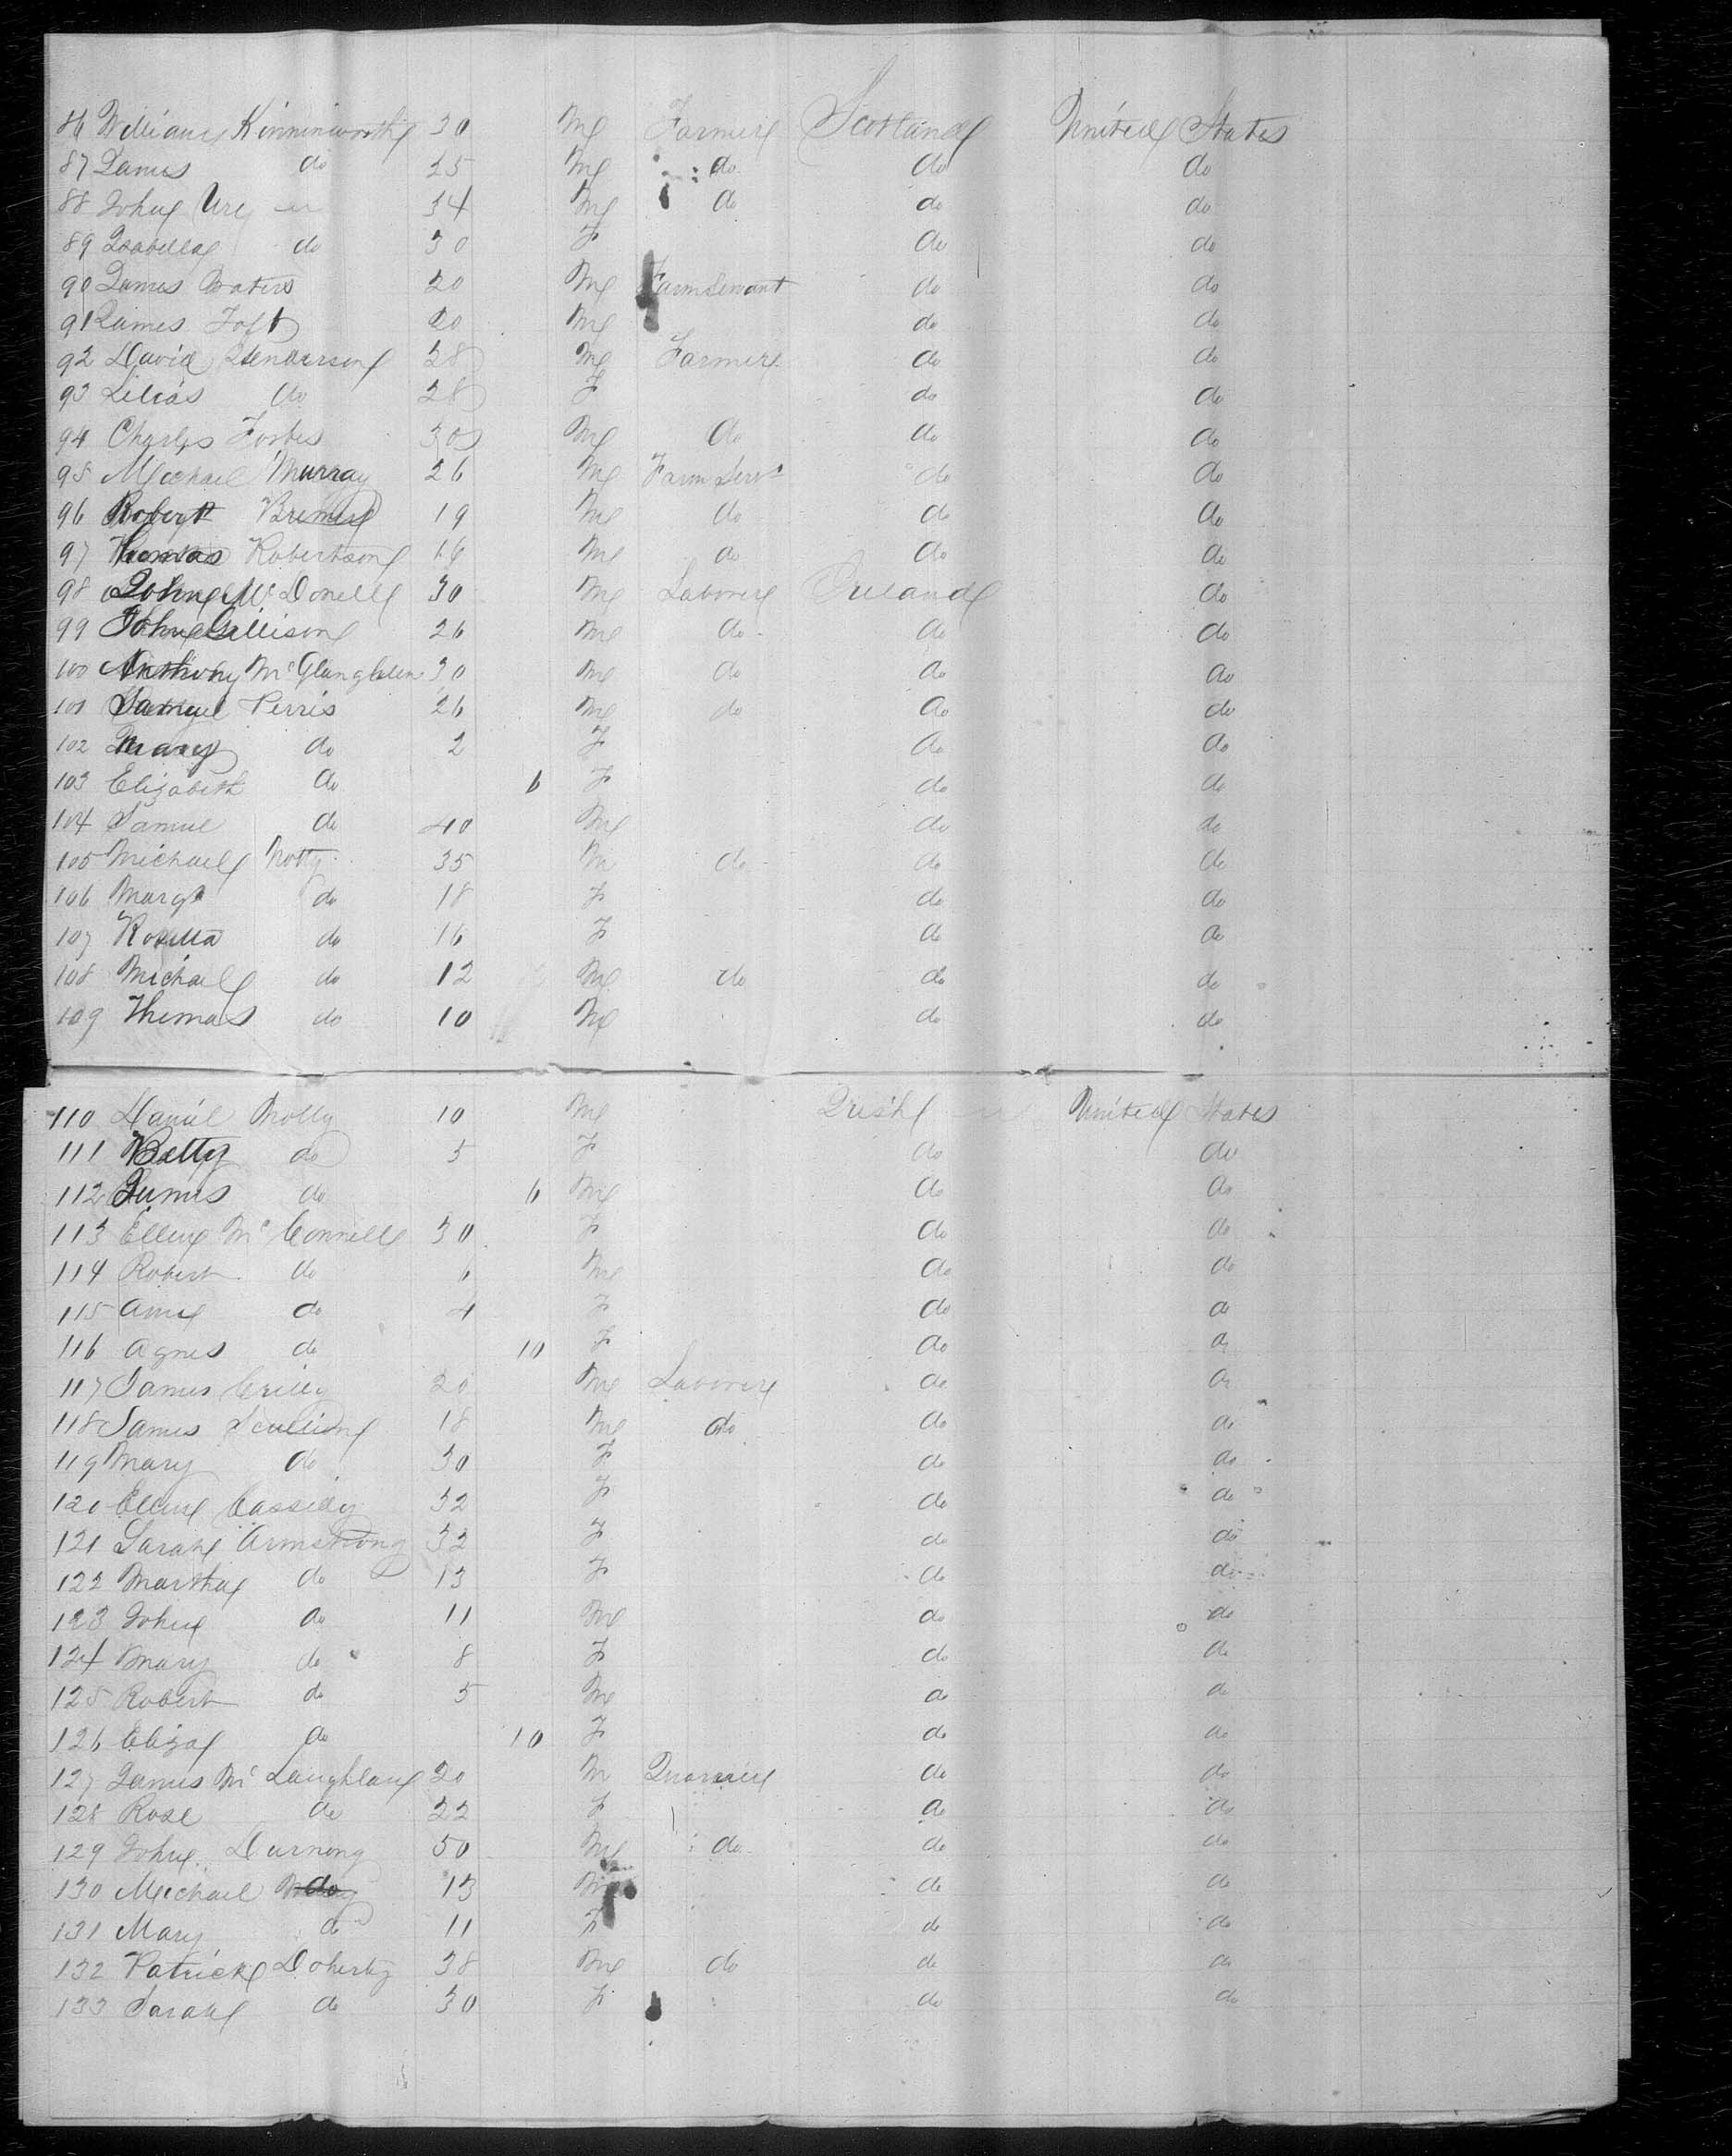 86 William Kinninworth 30 M Farmer Scotland United States
87 James do 25 M do do do
88 John Ure 34 M do do do
89 Isabella do 30 F do do
90 James Waters 20 M Farm Servant do do
91 James Toft 20 M do do
92 David Henderson 28 M Farmer do do
93 Lilias do 28 F do do
94 Charles Forbes 30 M do do do
95 Michael Murray 26 M Farm Servt do do
96 Robert Bremer 19 M do do do
97 Thomas Robertson 16 M do do do
98 John McDonell 30 M Laborer Ireland do
99 John Gillison 26 M do do do
100 Anthony McGlanghlen 30 M do do do
101 Samuel Perris 26 M do do do
102 Mary do 2 F do do
103 Elizabeth do 6 F do do
104 Samue do 40 M do do
105 Michael Molly 35 M do do do
106 Margt do 18 F do do
107 Rosetta do 16 F do do
108 Michael do 12 M do do do
109 Thomas do 10 M do do
110 Daniel Molly 10 M Irish United States
111 Betty do 5 F do do
112 James do 6 M do do
113 Ellen McConnell 30 F do do
114 Robert do 6 M do do
115 Ann do 4 F do do
116 Agnes do 10 F do do
117 James Crilly 20 M Laborer do do
118 James Scullion 18 M do do do
119 Mary do 30 F do do
120 Ellen Cassidy 32 F do do
121 Sarah Armstrong 32 F do do
122 Martha do 13 F do do
123 John do 11 M do do
124 Mary do 8 F do do
125 Robert do 5 M do do
126 Eliza do 10 F do do
127 James McLaughlan 20 M do do
128 Rose do 22 F do do
129 John Durnong 50 M do do do
130 Michael do 13 M do do
131 Mary do 11 F do do
132 Patrick Doherty 38 M do do do
133 Sarah do 30 F do do